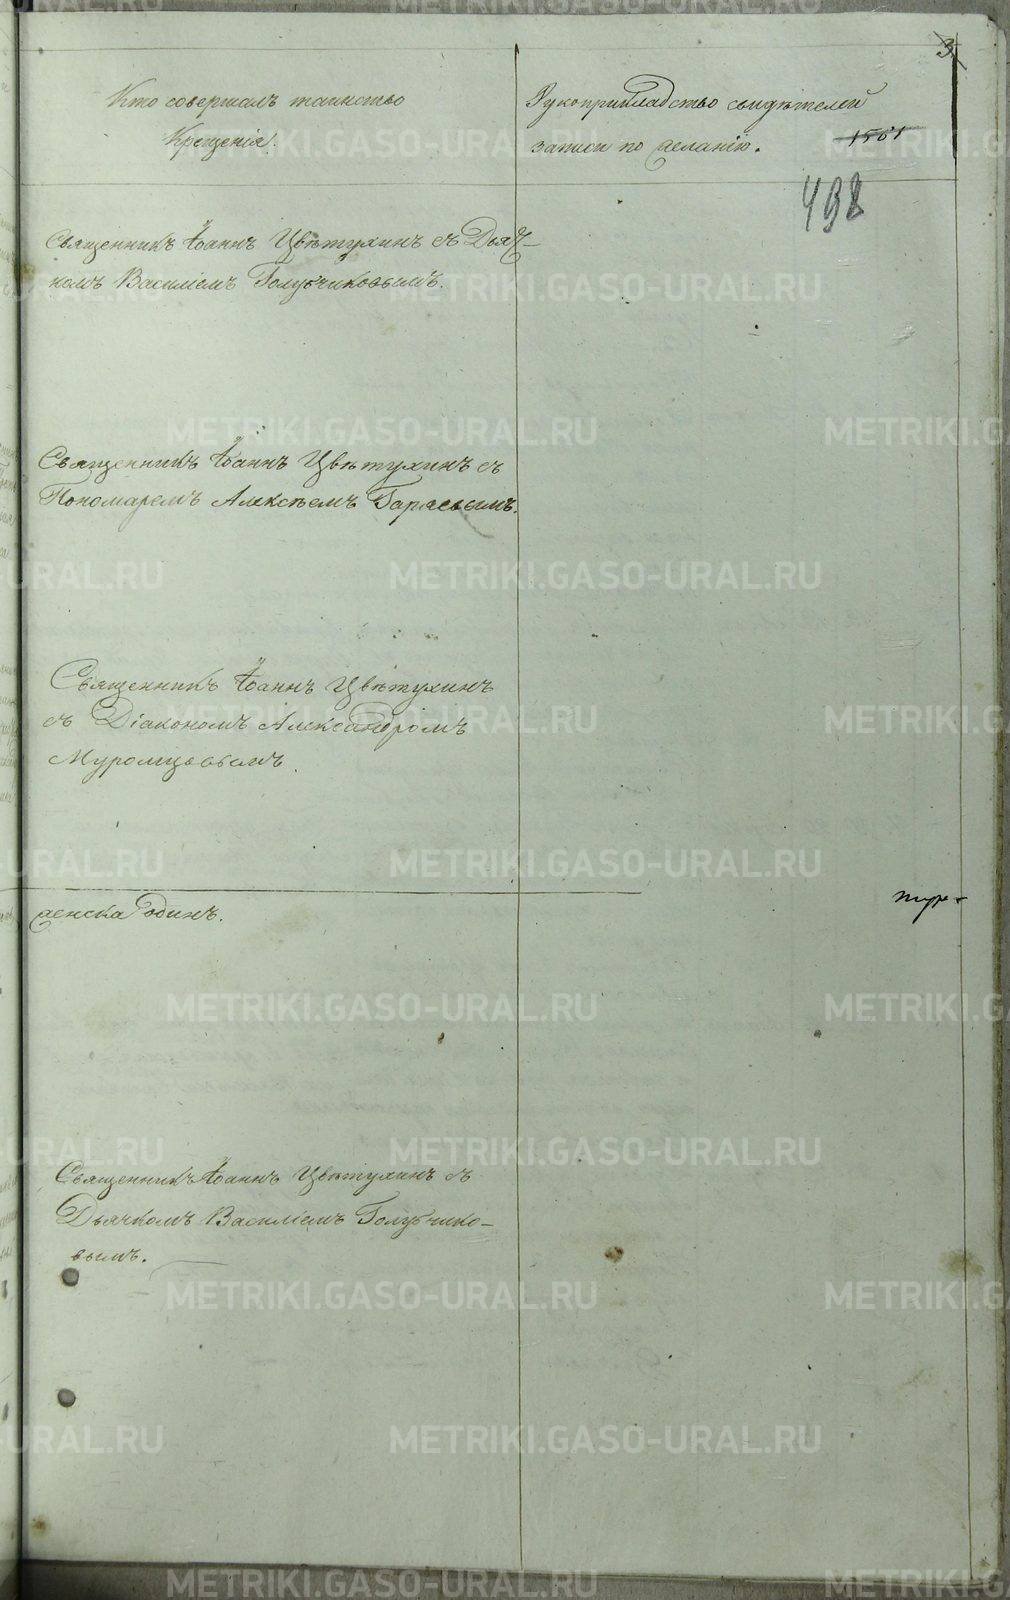 3
Кто совершалъ таинство
Крещенія.
Рукоприкладство свидѣтелей
записи по желанію.
1501
498
Священникъ Іоаннъ Цвѣтухинъ съ Дьяч-
комъ Василіемъ Голубчиковымъ.
Священникъ Іоаннъ Цвѣтухинъ съ
Пономаремъ Алексѣемъ Гаряевымъ.
Священникъ Іоаннъ Цвѣтухинъ
съ Діакономъ Александромъ
Муромцовымъ.
женска одинъ.
Священникъ Іоаннъ Цвѣтухинъ съ
Дьячкомъ Василіемъ Голубчико-
вымъ.
METRIKI.GASO-URAL.RU